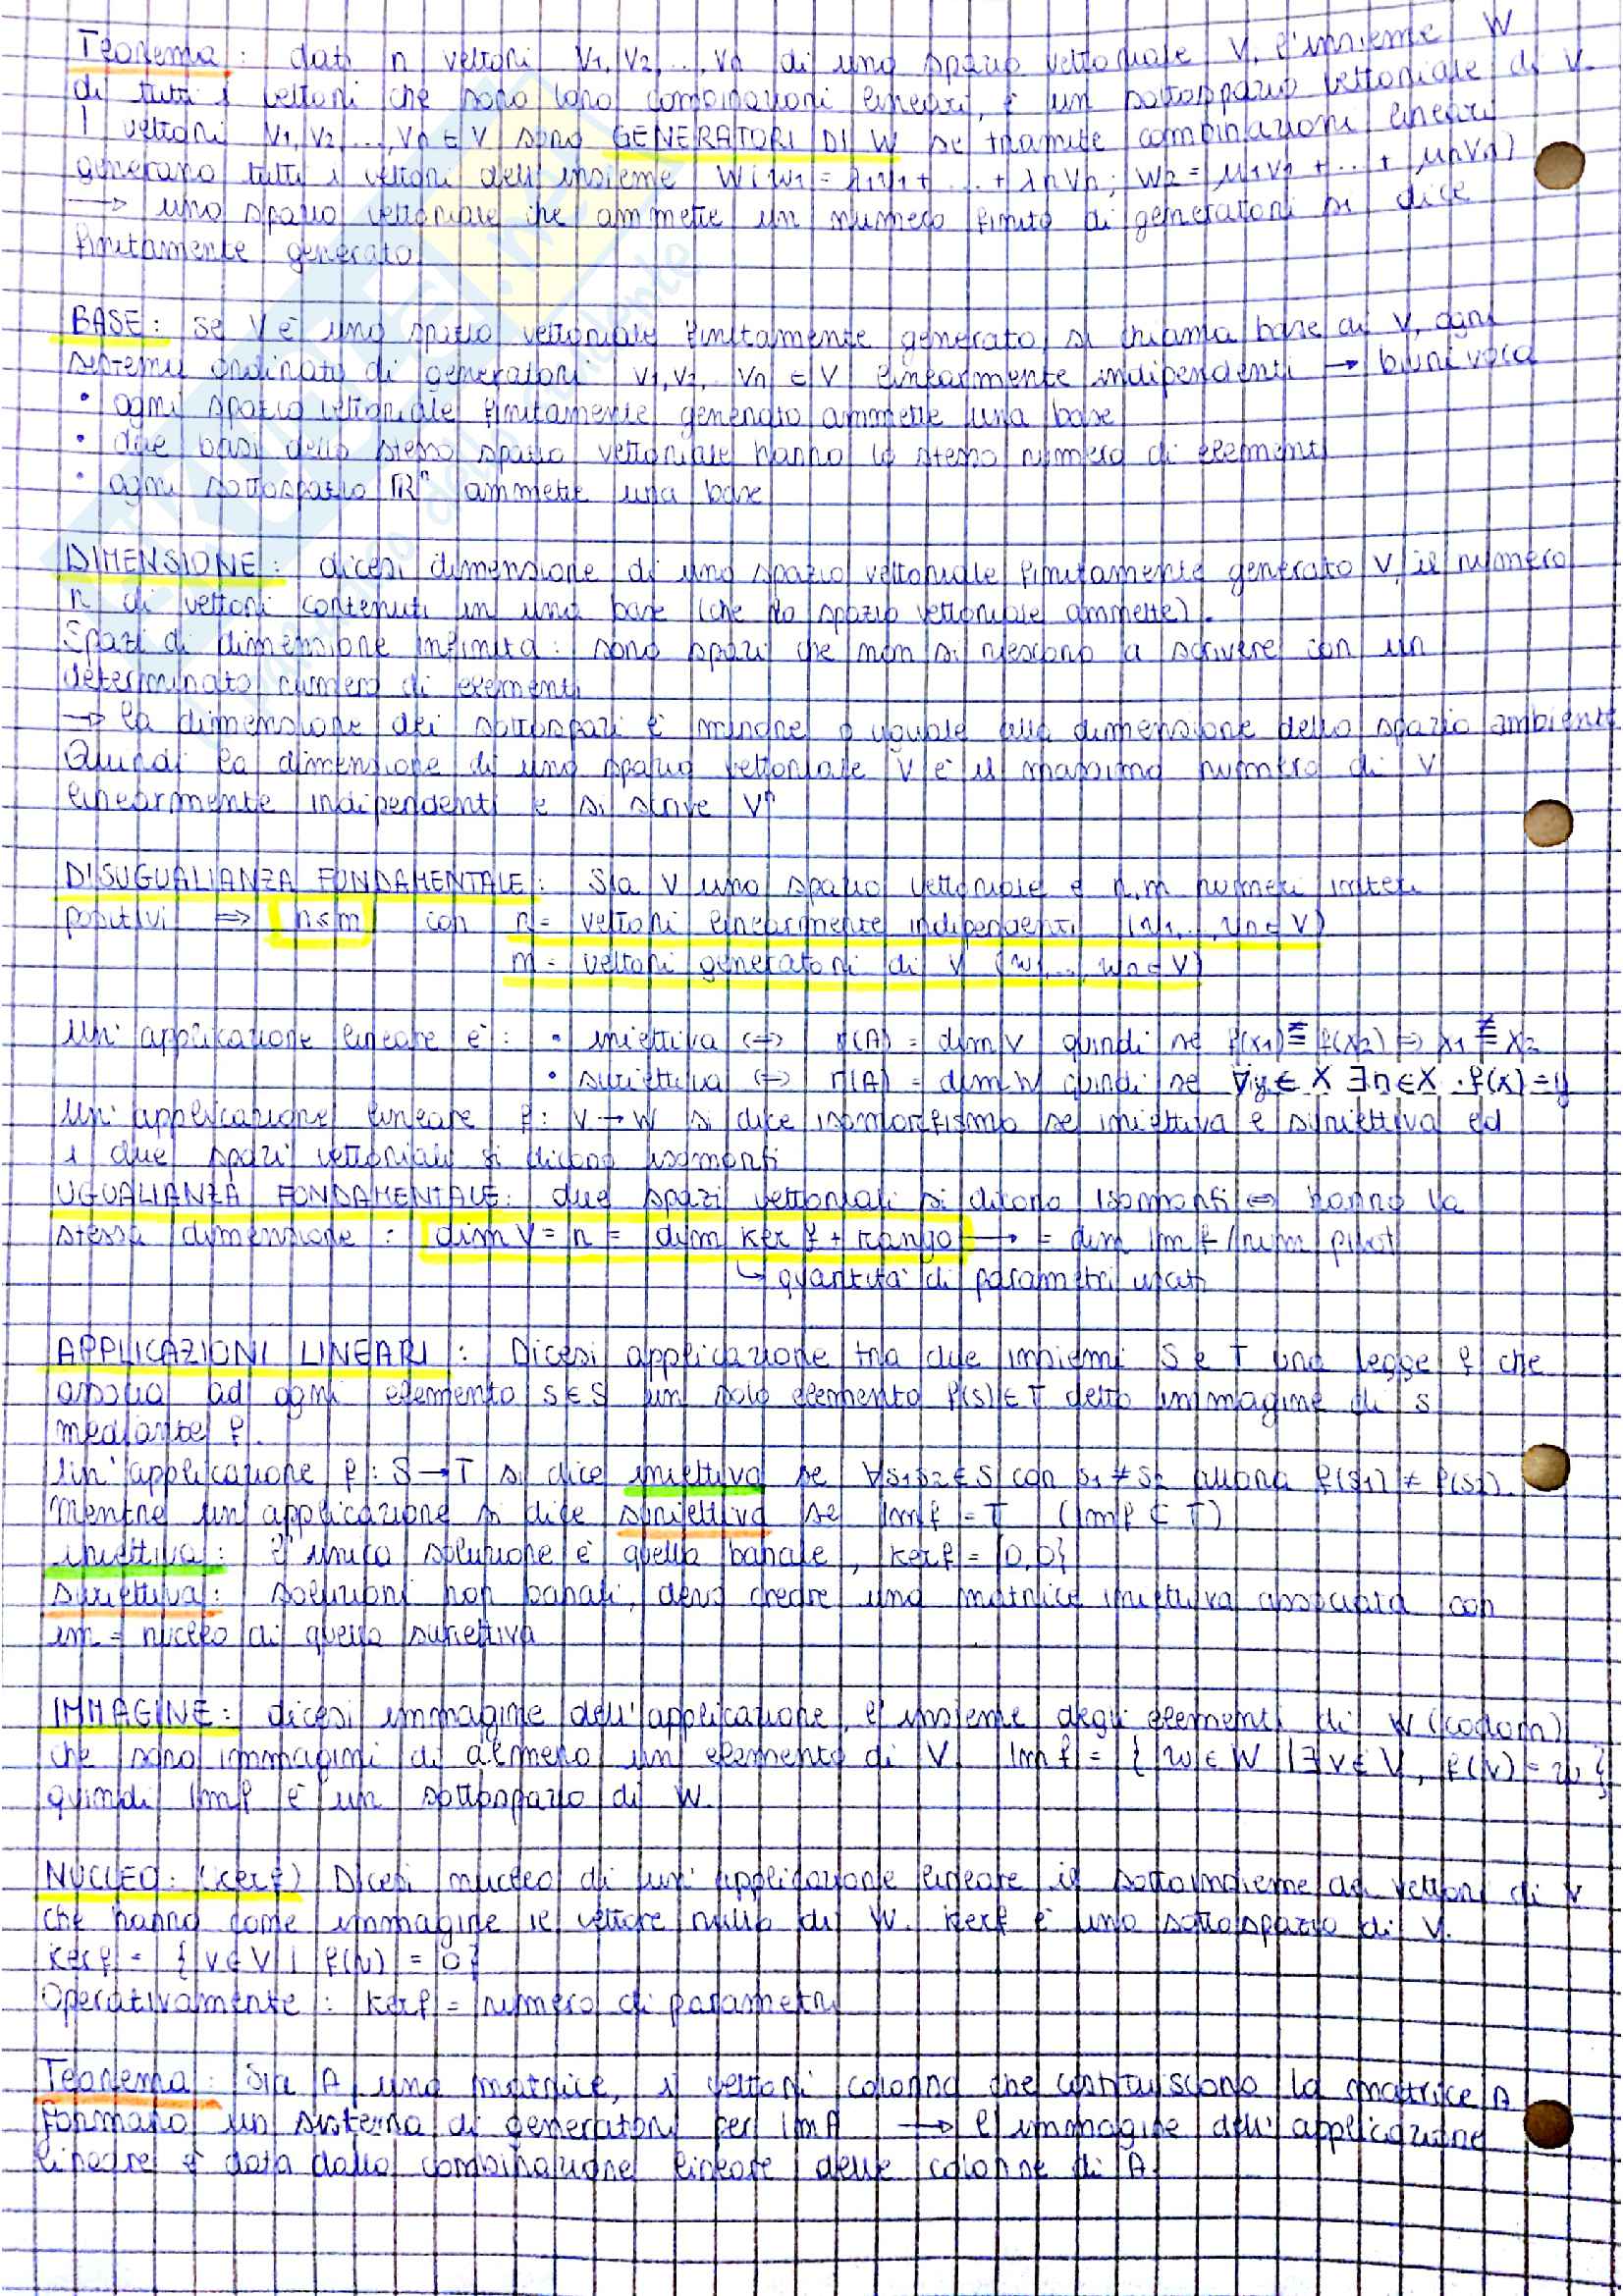 Teorema: dati n vettori v1, v2, ..., vn di uno spazio vettoriale V, l'insieme W
di tutti i vettori che sono loro combinazioni lineari, è un sottospazio vettoriale di V.
I vettori v1, v2, ..., vn ∈ V sono GENERATORI DI W se tramite combinazioni lineari
generano tutti i vettori dell'insieme W (w1 = λ1v1 + ... + λnvn; w2 = μ1v1 + ... + μnvn)
→ uno spazio vettoriale che ammette un numero finito di generatori si dice
finitamente generato.
BASE: se V è uno spazio vettoriale finitamente generato, si chiama base di V, ogni
sistema ordinato di generatori v1, v2, vn ∈ V linearmente indipendenti → biunivoca
• ogni spazio vettoriale finitamente generato ammette una base
• due basi dello stesso spazio vettoriale hanno lo stesso numero di elementi
• ogni sottospazio ℝⁿ ammette una base
DIMENSIONE: dicesi dimensione di uno spazio vettoriale finitamente generato V, il numero
n di vettori contenuti in una base (che lo spazio vettoriale ammette).
Spazi di dimensione infinita: sono spazi che non si riescono a scrivere con un
determinato numero di elementi
→ la dimensione dei sottospazi è minore o uguale alla dimensione dello spazio ambiente
Quindi la dimensione di uno spazio vettoriale V è il massimo numero di V
linearmente indipendenti e si scrive Vⁿ
DISUGUALIANZA FONDAMENTALE: Sia V uno spazio vettoriale e n, m numeri interi
positivi ⇒ n≤m con n = vettori linearmente indipendenti (v1, ..., vn ∈ V)
m = vettori generatori di V (w1, ..., wn ∈ V)
Un'applicazione lineare è: • iniettiva ⇔ r(A) = dim V quindi se f(x1) = f(x2) ⇒ x1 = x2
• suriettiva ⇔ r(A) = dim W quindi se ∀y ∈ X ∃ ∈ X . f(x) = y
Un'applicazione lineare f: V → W si dice isomorfismo se iniettiva e suriettiva ed
i due spazi vettoriali si dicono isomorfi
UGUALIANZA FONDAMENTALE: due spazi vettoriali si dicono isomorfi ⇔ hanno la
stessa dimensione: dim V = n = dim ker f + rango → = dim Im f / num pivot
↳ quantità di parametri usati
APPLICAZIONI LINEARI: Dicesi applicazione tra due insiemi S e T una legge f che
associa ad ogni elemento s ∈ S un solo elemento f(s) ∈ T detto immagine di s
mediante f.
Un'applicazione f: S → T si dice iniettiva se ∀s1 s2 ∈ S con s1 ≠ s2 allora f(s1) ≠ f(s2).
Mentre un'applicazione si dice suriettiva se Imf = T (Imf ⊆ T)
iniettiva: l'unica soluzione è quella banale, kerf = {0,0}
suriettiva: soluzioni non banali, devo creare una matrice iniettiva associata con
im = nucleo di quella suriettiva
IMMAGINE: dicesi immagine dell'applicazione, l'insieme degli elementi di W (codom)
che sono immagini di almeno un elemento di V Imf = { w ∈ W | ∃ v ∈ V, f(v) = w }
quindi Imf è un sottospazio di W.
NUCLEO: (ker f) Dicesi nucleo di un'applicazione lineare il sottoinsieme dei vettori di V
che hanno come immagine il vettore nullo di W. Kerf è uno sottospazio di V.
Ker f = { v ∈ V | f(v) = 0 }
Operativamente: kerf = numero di parametri
Teorema: Sia A una matrice, i vettori colonna che costituiscono la matrice A
formano un sistema di generatori per ImA → l'immagine dell'applicazione
lineare è data dalla combinazione lineare delle colonne di A.